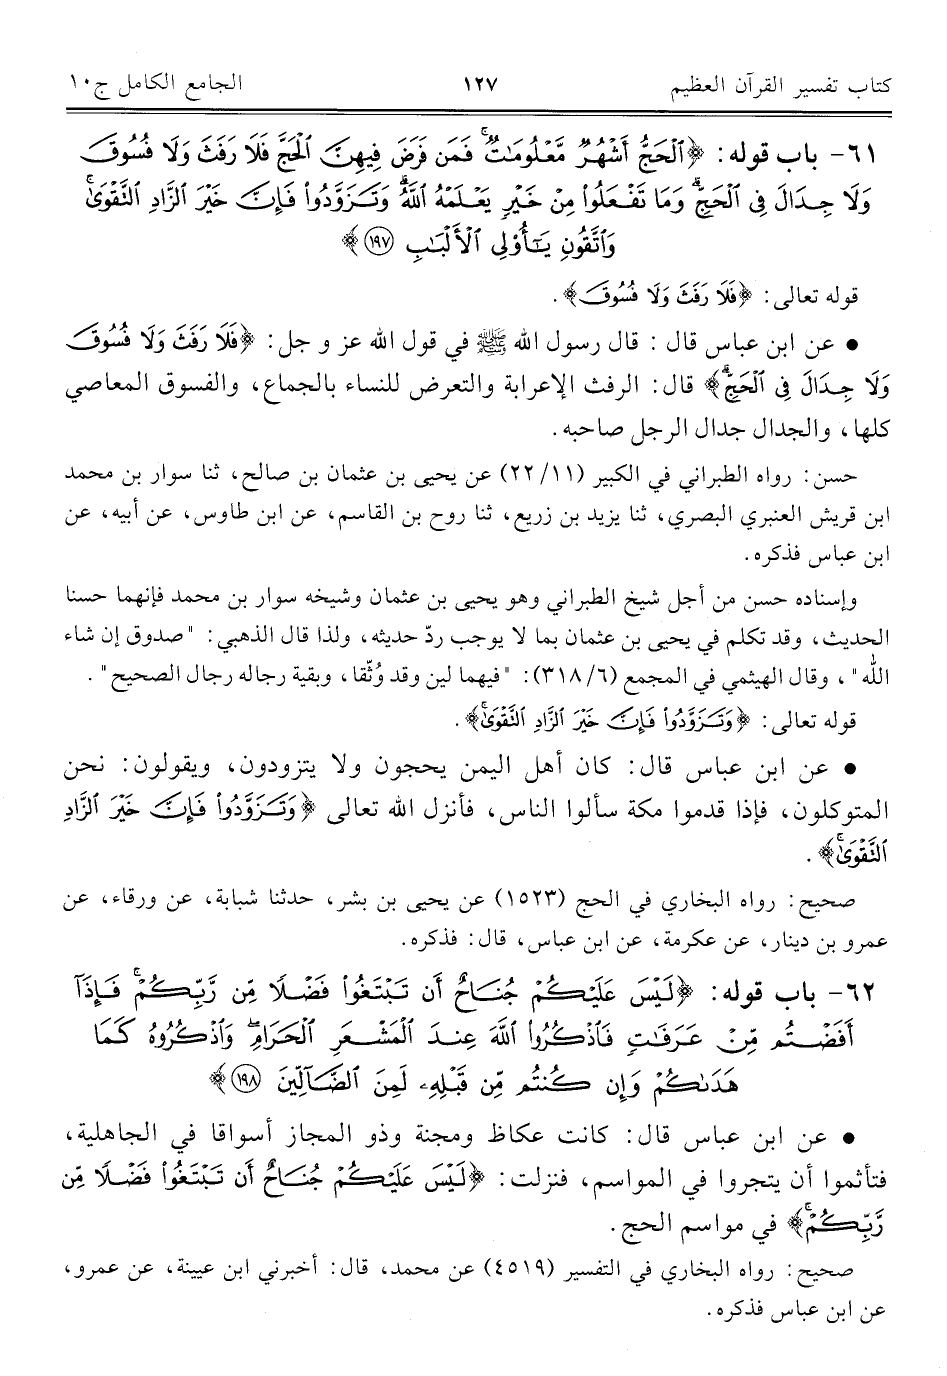 كتاب تفسير القرآن العظيم ١٢٧ الجامع الكامل ج١٠
٦١- باب قوله: ﴿ٱلْحَجُّ أَشْهُرٌ مَّعْلُومَـٰتٌ ۚ فَمَن فَرَضَ فِيهِنَّ ٱلْحَجَّ فَلَا رَفَثَ وَلَا فُسُوقَ
وَلَا جِدَالَ فِى ٱلْحَجِّ ۗ وَمَا تَفْعَلُوا۟ مِنْ خَيْرٍ يَعْلَمْهُ ٱللَّهُ ۗ وَتَزَوَّدُوا۟ فَإِنَّ خَيْرَ ٱلزَّادِ ٱلتَّقْوَىٰ ۚ
وَٱتَّقُونِ يَـٰٓأُو۟لِى ٱلْأَلْبَـٰبِ ١٩٧﴾
قوله تعالى: ﴿فَلَا رَفَثَ وَلَا فُسُوقَ﴾.
• عن ابن عباس قال : قال رسول الله ﷺ في قول الله عز و جل: ﴿فَلَا رَفَثَ وَلَا فُسُوقَ
وَلَا جِدَالَ فِى ٱلْحَجِّ ۗ﴾ قال: الرفث الإعرابة والتعرض للنساء بالجماع، والفسوق المعاصي
كلها، والجدال جدال الرجل صاحبه.
حسن: رواه الطبراني في الكبير (١١/ ٢٢) عن يحيى بن عثمان بن صالح، ثنا سوار بن محمد
ابن قريش العنبري البصري، ثنا يزيد بن زريع، ثنا روح بن القاسم، عن ابن طاوس، عن أبيه، عن
ابن عباس فذكره.
وإسناده حسن من أجل شيخ الطبراني وهو يحيى بن عثمان وشيخه سوار بن محمد فإنهما حسنا
الحديث، وقد تكلم في يحيى بن عثمان بما لا يوجب ردّ حديثه، ولذا قال الذهبي: "صدوق إن شاء
الله"، وقال الهيثمي في المجمع (٦/ ٣١٨): "فيهما لين وقد وُثّقا، وبقية رجاله رجال الصحيح".
قوله تعالى: ﴿وَتَزَوَّدُوا۟ فَإِنَّ خَيْرَ ٱلزَّادِ ٱلتَّقْوَىٰ ۚ﴾.
• عن ابن عباس قال: كان أهل اليمن يحجون ولا يتزودون، ويقولون: نحن
المتوكلون، فإذا قدموا مكة سألوا الناس، فأنزل الله تعالى ﴿وَتَزَوَّدُوا۟ فَإِنَّ خَيْرَ ٱلزَّادِ
ٱلتَّقْوَىٰ ۚ﴾.
صحيح: رواه البخاري في الحج (١٥٢٣) عن يحيى بن بشر، حدثنا شبابة، عن ورقاء، عن
عمرو بن دينار، عن عكرمة، عن ابن عباس، قال: فذكره.
٦٢- باب قوله: ﴿لَيْسَ عَلَيْكُمْ جُنَاحٌ أَن تَبْتَغُوا۟ فَضْلًا مِّن رَّبِّكُمْ ۚ فَإِذَآ
أَفَضْتُم مِّنْ عَرَفَـٰتٍ فَٱذْكُرُوا۟ ٱللَّهَ عِندَ ٱلْمَشْعَرِ ٱلْحَرَامِ ۖ وَٱذْكُرُوهُ كَمَا
هَدَىٰكُمْ وَإِن كُنتُم مِّن قَبْلِهِۦ لَمِنَ ٱلضَّآلِّينَ ١٩٨﴾
• عن ابن عباس قال: كانت عكاظ ومجنة وذو المجاز أسواقا في الجاهلية،
فتأثموا أن يتجروا في المواسم، فنزلت: ﴿لَيْسَ عَلَيْكُمْ جُنَاحٌ أَن تَبْتَغُوا۟ فَضْلًا مِّن
رَّبِّكُمْ ۚ﴾ في مواسم الحج.
صحيح: رواه البخاري في التفسير (٤٥١٩) عن محمد، قال: أخبرني ابن عيينة، عن عمرو،
عن ابن عباس فذكره.